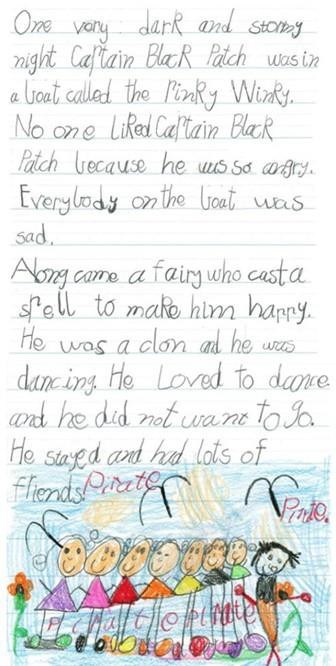 One very dark and stormy
night Captain Black Patch was in
a boat called the Pinky Winky.
No one liked Captain Black
Patch because he was so angry.
Everybody on the boat was
sad.
Along came a fairy who cast a
spell to make him happy.
He was a clon and he was
dancing. He Loved to dance
and he did not want to go.
He stayed and had lots of
ffiends! Pirate
Pirate.